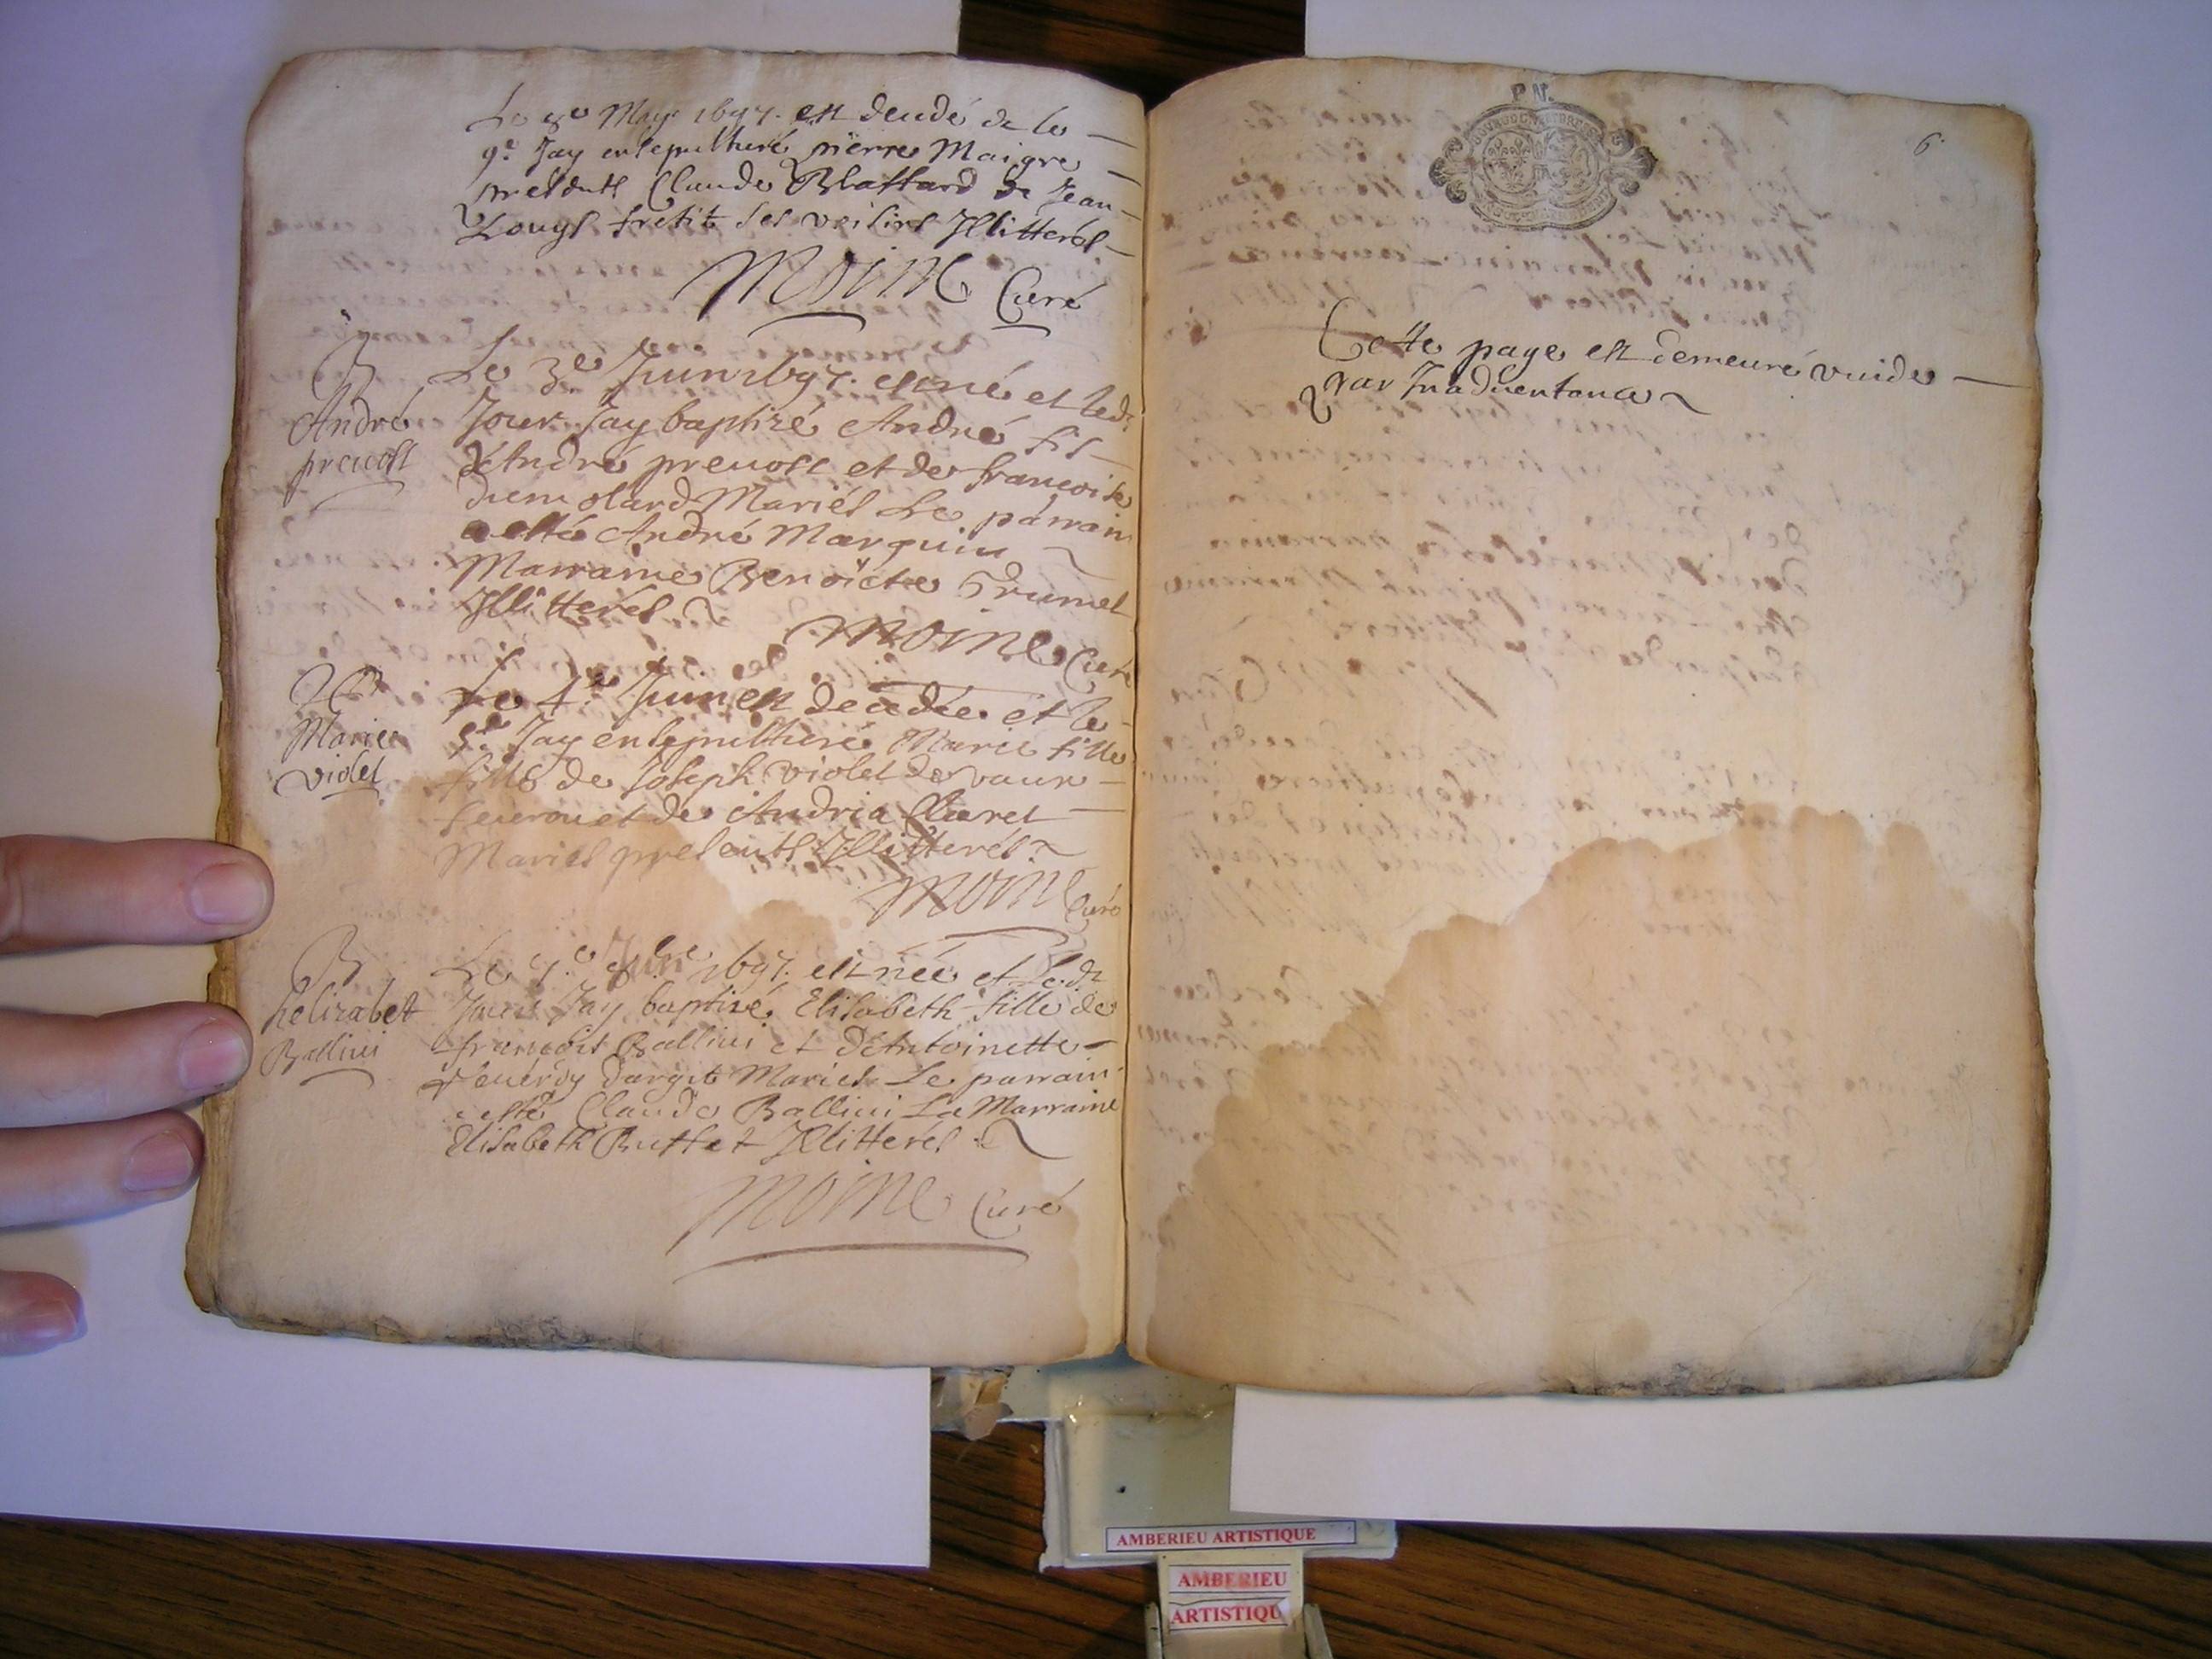 Le 8e May 1697. est decedé & le
9e Jay ensepulturé pierre Maigre
presents Claude Blattard & Jean
Louys fretit ses voisins Illitterés
Moine Curé
B
André
prevost
Le 3e Juin 1697. est né et led.
Jour Jay baptizé André fils
d'André prevost et de francoise
dumolard Mariés Le parrain
a esté André Marguin
Marraine Benoicte Brunet
Illitterés
Moine Curé
Marie
violet
Le 4e Juin est decedée et le
5e Jay ensepulturé Marie fille
fille de Joseph violet de vaux
et de Andria Claret
Mariés presents Illitterés
Moine Curé
B
helizabet
Ballivi
Le 7e 1697. est née et led.
Jour Jay baptizé Elisabeth fille de
francois Ballivi et d'Antoinette
dargit Mariés Le parrain
a esté Claude Ballivi La Marraine
Elisabeth Buffet Illitterés
Moine Curé
6
Cette page est demeuré vuide
par Inaduentance
AMBERIEU ARTISTIQUE
AMBERIEU
ARTISTIQU